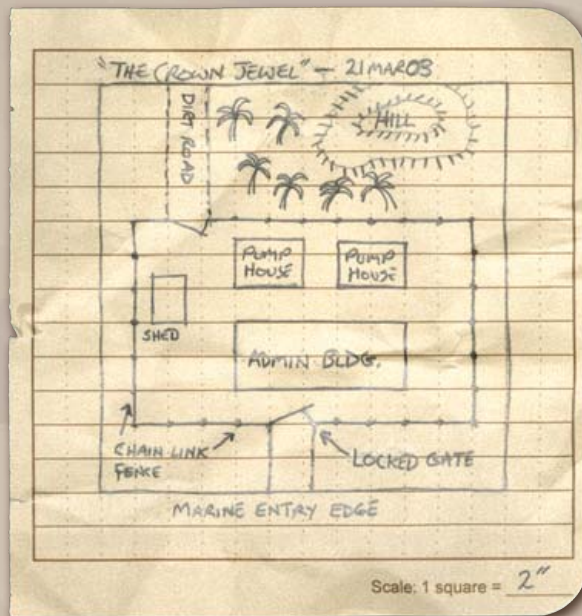 "THE CROWN JEWEL" – 21MAR03
DIRT ROAD
HILL
PUMP
HOUSE
PUMP
HOUSE
SHED
ADMIN BLDG.
CHAIN LINK
FENCE
LOCKED GATE
MARINE ENTRY EDGE
Scale: 1 square = 2"